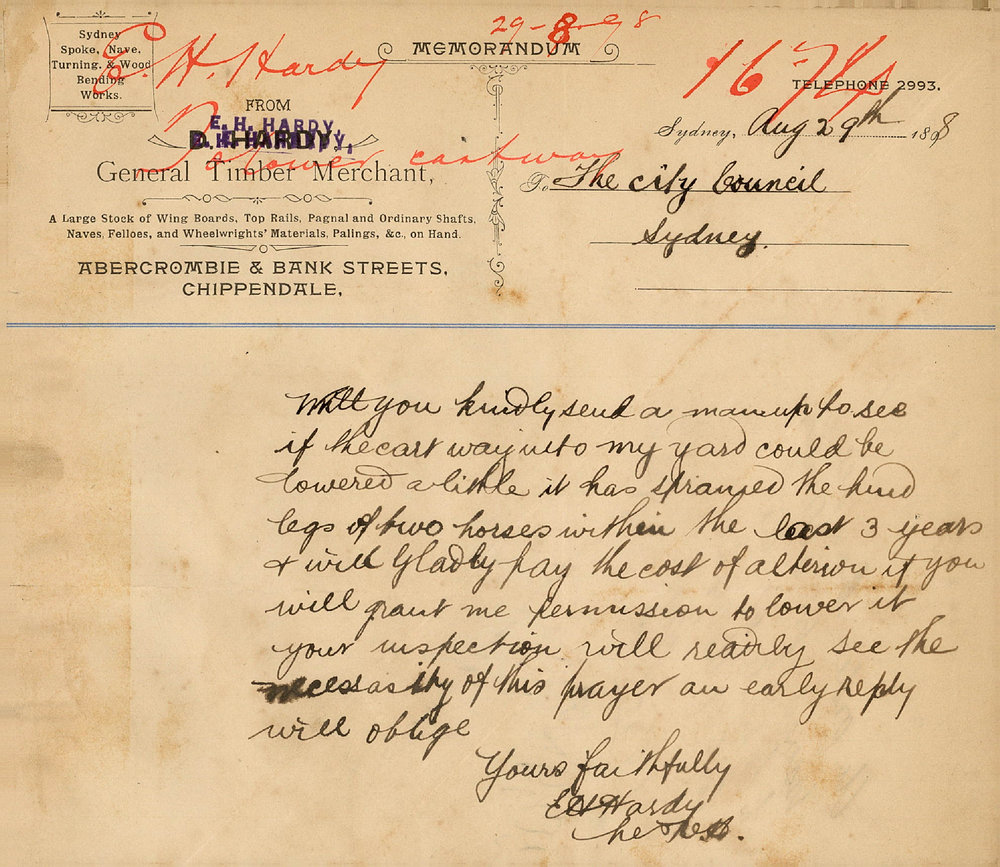 Sydney
Spoke, Nave,
Turning, & Wood
Bending
Works.
E. H. Hardy
29-8-98
MEMORANDUM
1674
TELEPHONE 2993.
FROM
E. H. HARDY,
HARDY,
To lower cartway
General Timber Merchant,
A Large Stock of Wing Boards, Top Rails, Pagnal and Ordinary Shafts,
Naves, Felloes, and Wheelwrights' Materials, Palings, &c., on Hand.
ABERCROMBIE & BANK STREETS,
CHIPPENDALE,
Sydney, Aug 29th 1898
To The city Council
Sydney.
Will you kindly send a man up to see
if the cart way into my yard could be
lowered a little it has strained the hind
legs of two horses within the last 3 years
& will Gladly pay the cost of altirion if you
will grant me permission to lower it
your inspection will readily see the
necessasity of this prayer an early reply
will oblige
Yours faithfully
EH Hardy